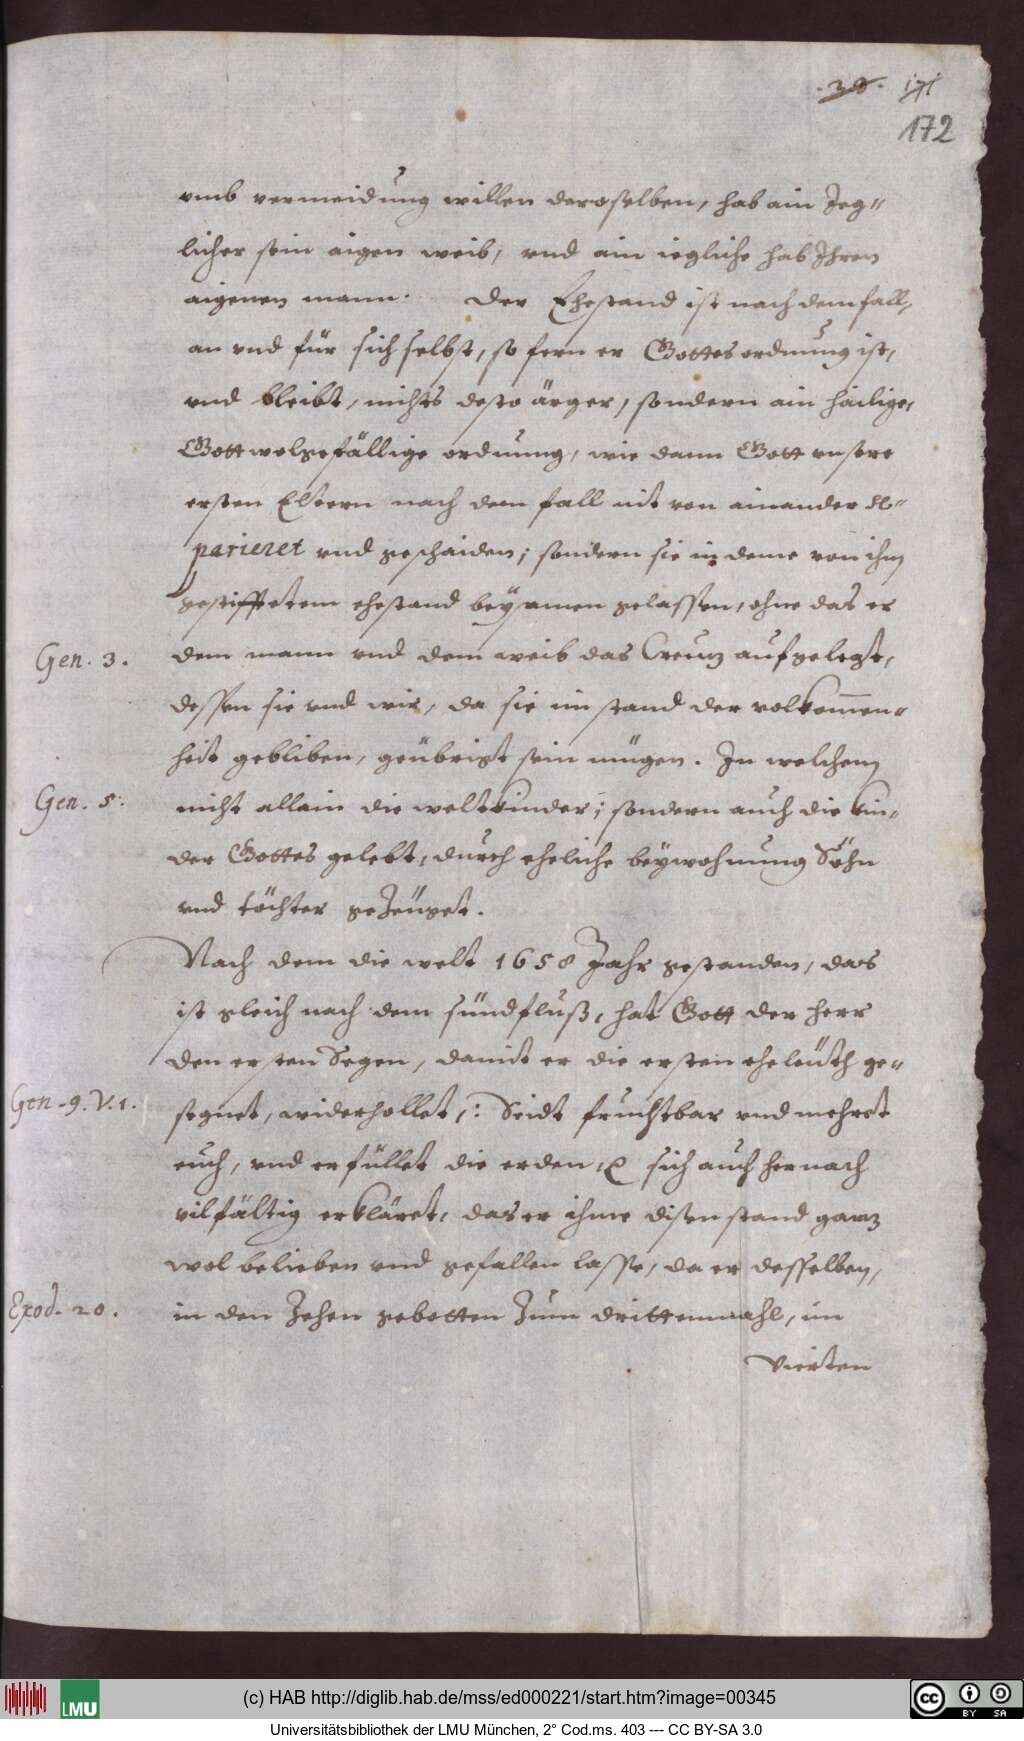 .38. 171
172
vmb vermeidung willen deroselben, hab ain Jeg=
licher sein aigen weib, vnd ain iegliche hab Ihren
aigenen mann. Der Ehestand ist nach dem fall,
an vnd für sich selbst, so fern er Gottes ordnung ist,
vnd bleibt, nichts desto ärger, sondern ain hailige,
Gott wolgefällige ordnung, wie dann Gott vnsere
ersten Eltern nach dem fall nit von ainander se=
parieret vnd geschaiden; sondern sie in deme von ihm
gestifftetem ehestand beysamen gelassen, ohne das er
Gen. 3. dem mann vnd dem weib das Creutz aufgelegt,
dessen sie vnd wir, da sie im stand der volkommen=
heit gebliben, geübrigt sein mügen. In welchem
Gen. 5. nicht allain die weltkinder; sondern auch die kin=
der Gottes gelebt, durch eheliche beywohnung Söhn
vnd töchter gezeüget.
Nach dem die welt 1658 Jahr gestanden, das
ist gleich nach dem sündfluß, hat Gott der herr
den ersten Segen, damit er die ersten eheleüth ge=
Gen. 9. V. 1. segnet, widerhollet,: Seidt fruchtbar vnd mehret
euch, vnd erfüllet die erden, sich auch hernach
vilfältig erkläret, das er ihme disen stand gantz
wol belieben vnd gefallen lasse, da er desselben,
Exod. 20. in den Zehen gebotten Zum drittenmahl, im
Vierten
(c) HAB http://diglib.hab.de/mss/ed000221/start.htm?image=00345
LMU
cc BY SA
Universitätsbibliothek der LMU München, 2° Cod.ms. 403 --- CC BY-SA 3.0